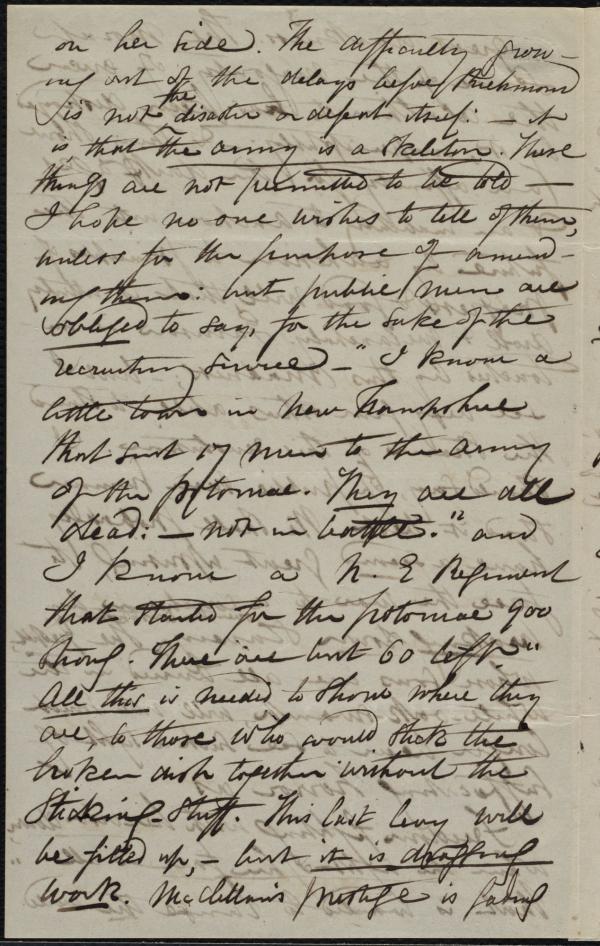 on her side. The difficulty grow-
ing out of the delays before Richmond
is not the disaster or defeat itself: – it
is, that the army is a skeleton. These
things are not permitted to be told –
I hope no one wishes to tell of them,
unless for the purpose of amend-
ing them: but public men are
obliged to say, for the sake of the
recruiting service – "I know a
little town in New Hampshire
that sent 17 men to the army
of the potomac. They are all
dead: – not in battle." and
I know a N. E Regiment
that started for the potomac 900
strong. There are but 60 left."
All this is needed to show where they
are, to those who would stick the
broken dish together without the
Sticking-Stuff. This last levy will
be filled up, – but it is dragging
work. McClellan's prestige is fading